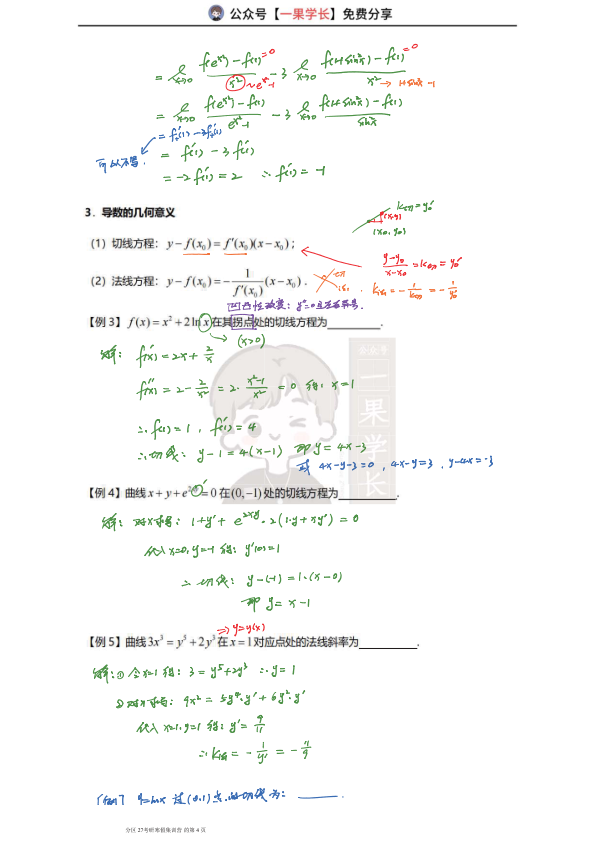 公众号【一果学长】免费分享
= lim x→0 (f(e^{x²})-f(1))/x² - 3 lim x→0 (f(1+sin²x)-f(1))/x²
=0
=0
~e^{x²}-1
→1+sin²x-1
= lim x→0 (f(e^{x²})-f(1))/(e^{x²}-1) - 3 lim x→0 (f(1+sin²x)-f(1))/sin²x
= f'(1) - 3f'(1)
= f'(1) - 3f'(1)
= -2f'(1) = 2 ∴ f'(1) = -1
3. 导数的几何意义
K切=y₀'
(x,y)
(x₀,y₀)
(1) 切线方程: y-f(x₀)=f'(x₀)(x-x₀);
(y-y₀)/(x-x₀)=K切=y₀'
(2) 法线方程: y-f(x₀)=-1/f'(x₀)(x-x₀).
切
法
K法=-1/K切=-1/y₀'
凹凸性改变: y''=0且左右异号.
【例 3】 f(x)=x²+2ln x在其拐点处的切线方程为________.
(x>0)
解: f'(x)=2x+2/x
f''(x)=2-2/x²=2·(x²-1)/x²=0 得: x=1
∴f(1)=1, f'(1)=4
∴切线: y-1=4(x-1) 即y=4x-3
或 4x-y-3=0, 4x-y=3, y-4x=-3
公众号
一果学长
【例 4】曲线 x+y+e^{2xy}=0 在(0,-1)处的切线方程为________.
解: 对x求导: 1+y'+e^{2xy}·2(1·y+xy')=0
代入x=0,y=-1 得: y'(0)=1
∴切线: y-(-1)=1·(x-0)
即 y=x-1
⇒y=y(x)
【例 5】曲线3x³=y⁵+2y³在x=1对应点处的法线斜率为________.
解:①令x=1得: 3=y⁵+2y³ ∴y=1
②对x求导: 9x²=5y⁴·y'+6y²·y'
代入x=1,y=1得: y'=9/11
∴K法=-1/y'=-11/9
【例】y=lnx 过(0,1)点的切线为: ________.
分区 27考研寒假集训营 的第 4 页